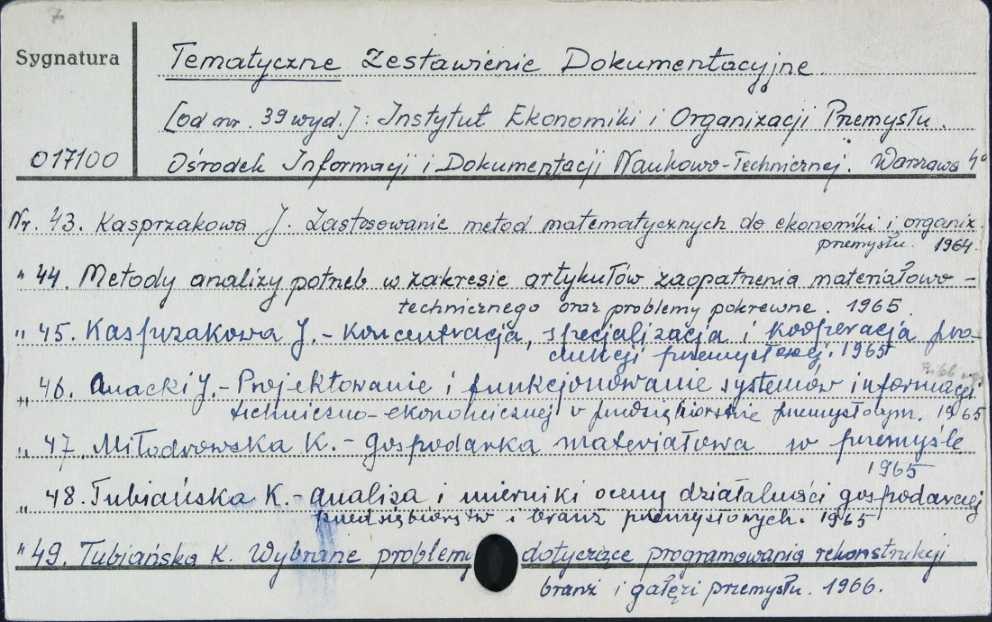 7
Sygnatura
Tematyczne Zestawienie Dokumentacyjne
[od nr. 39 wyd.]: Instytut Ekonomiki i Organizacji Przemysłu.
017100
Ośrodek Informacji i Dokumentacji Naukowo-Technicznej. Warszawa 4°
Nr. 43. Kasprzakowa J. Zastosowanie metod matematycznych do ekonomiki i organiz.
przemysłu. 1964
" 44. Metody analizy potrzeb w zakresie artykułów zaopatrzenia materiałowo-
technicznego oraz problemy pokrewne. 1965
" 45. Kasprzakowa J. - Koncentracja, specjalizacja i kooperacja pro-
dukcji przemysłowej. 1965
" 46. J. - Projektowanie i funkcjonowanie systemów informacji
techniczno-ekonomicznej w przedsiębiorstwie przemysłowym. 1965
" 47. Miłodrowska K. - gospodarka materiałowa w przemyśle
1965
" 48. Tubiańska K. - analiza i mierniki oceny działalności gospodarczej
przedsiębiorstw i branż przemysłowych. 1965
" 49. Tubiańska K. Wybrane problemy dotyczące programowania rekonstrukcji
branż i gałęzi przemysłu. 1966.